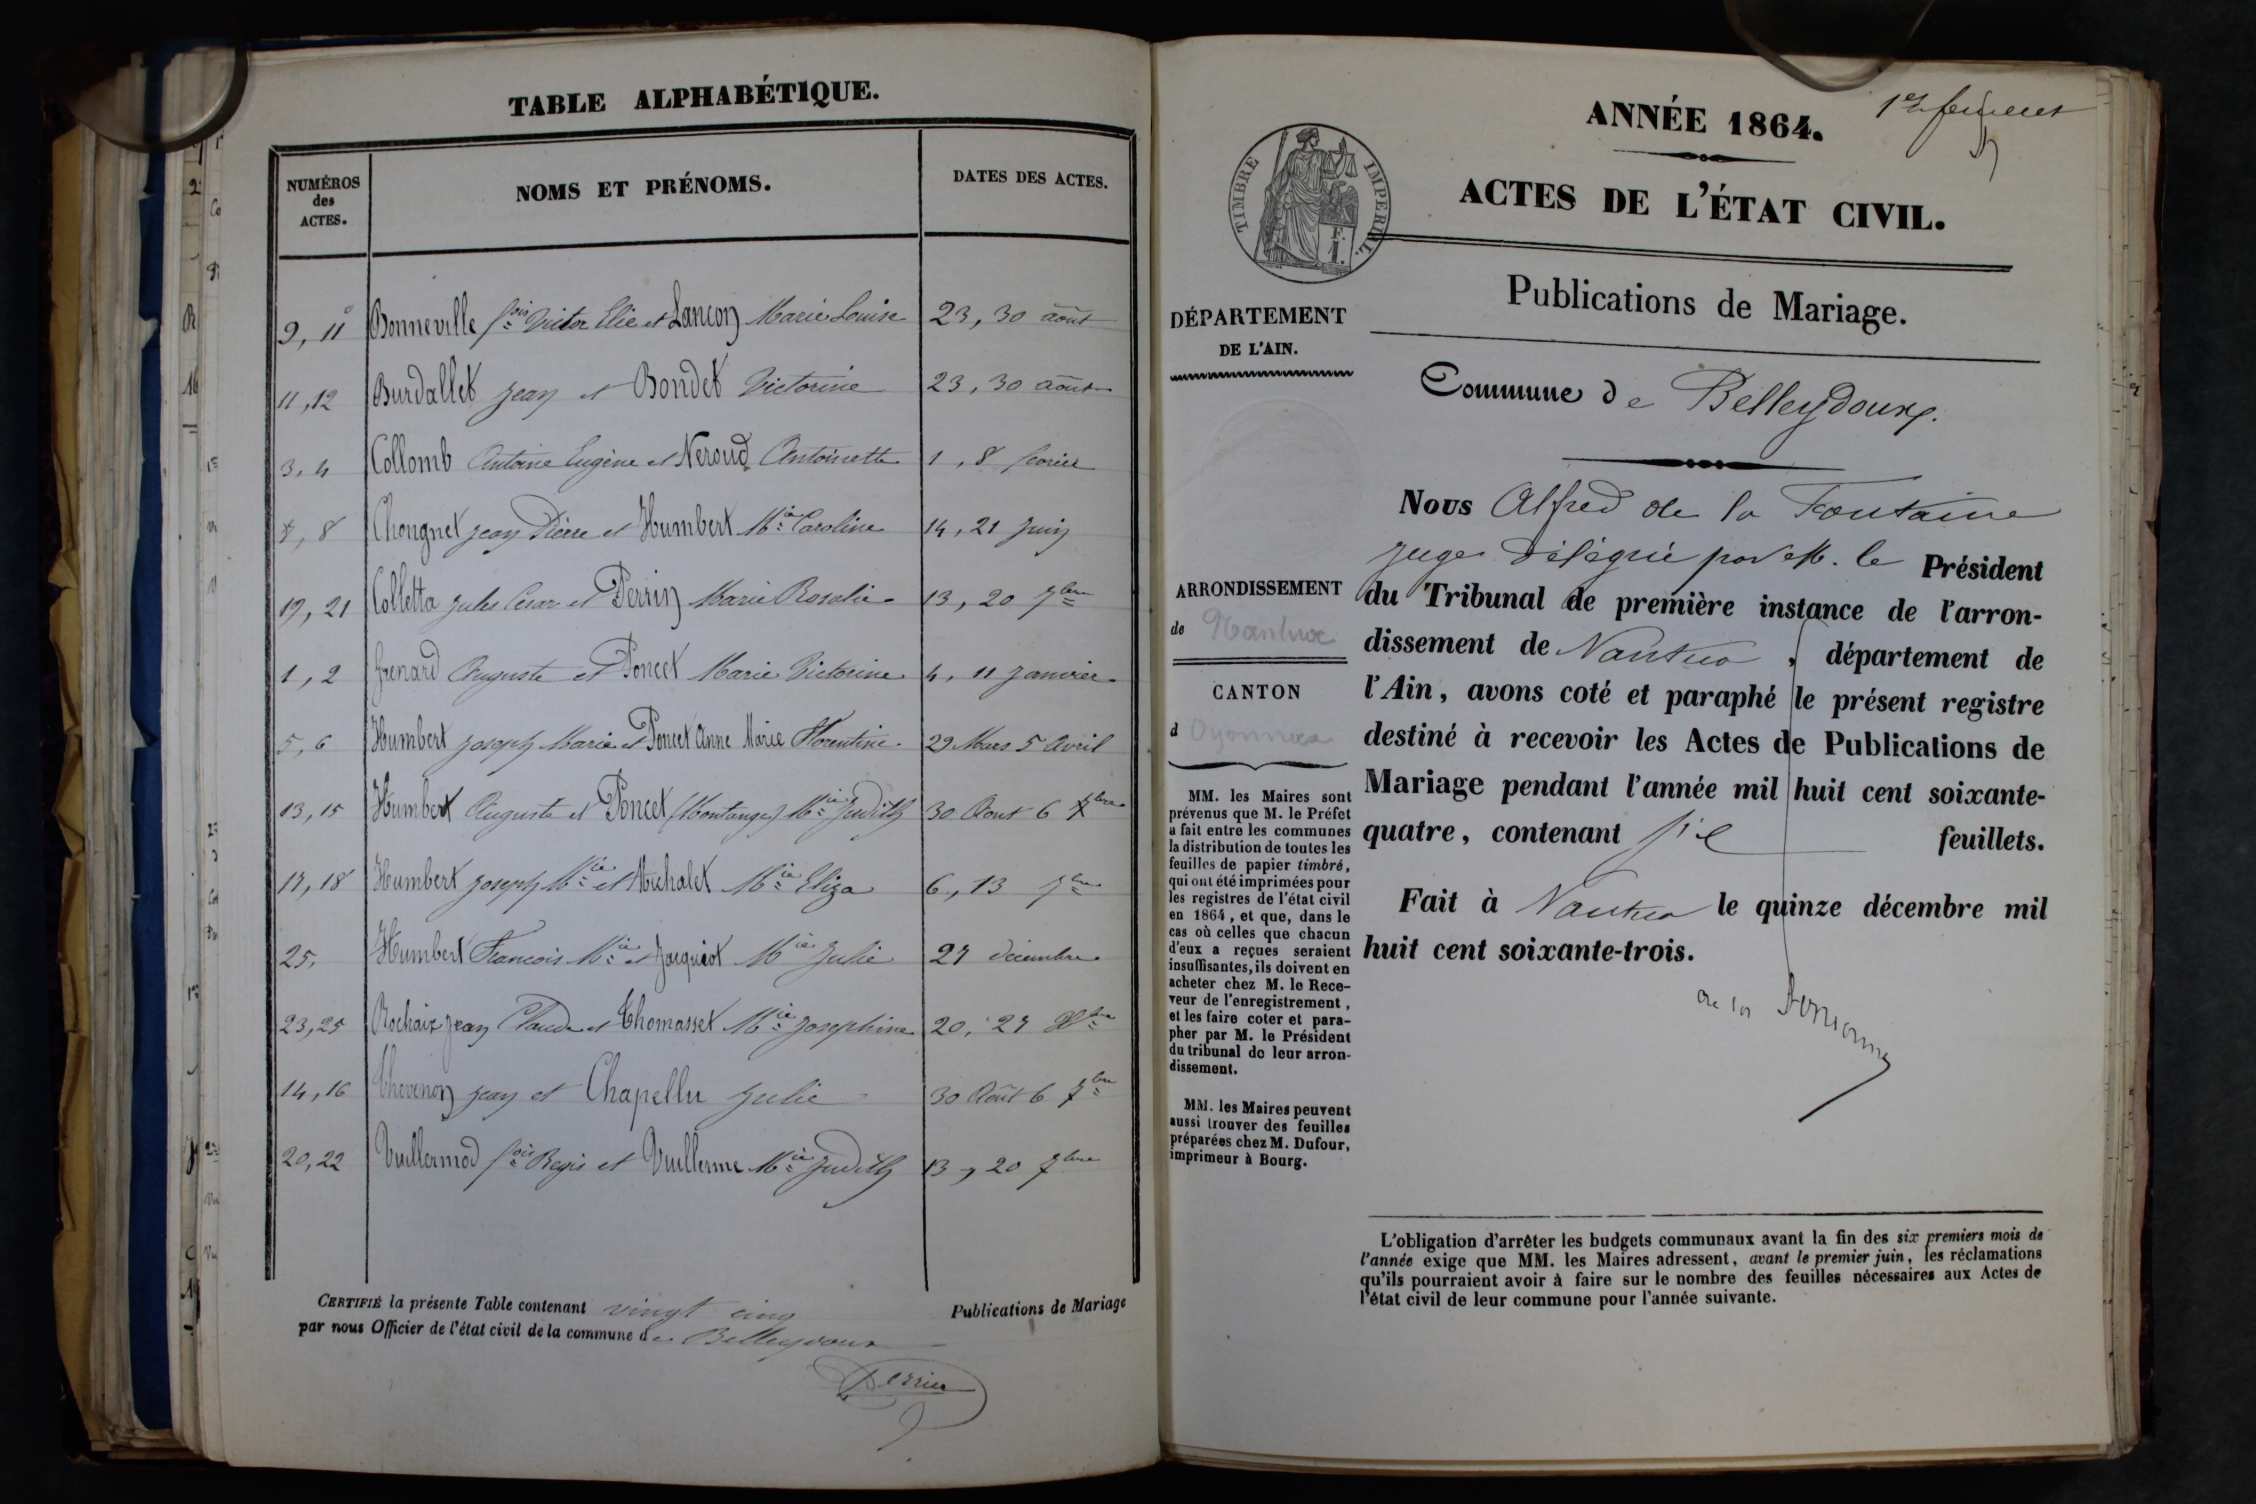 TABLE ALPHABÉTIQUE.
NUMÉROS
des
ACTES.
NOMS ET PRÉNOMS.
DATES DES ACTES.
9, 11 Bonneville fois Victor Elie et Lançon Marie Louise 23, 30 août
11, 12 Burdallet Jean et Bondet Victorine 23, 30 aout
3, 4 Collomb Antoine Eugène et Neroud Antoinette 1, 8 fevrier
7, 8 Chongnet Jean Pierre et Humbert Mie Caroline 14, 21 Juin
19, 21 Colletta Jules Cesar et Perrin Marie Rosalie 13, 20 7bre
1, 2 Grenard Auguste et Poncet Marie Victorine 4, 11 Janvier
5, 6 Humbert Joseph Marie et Poncet Anne Marie Florentine 29 Mars 5 Avril
13, 15 Humbert Auguste et Poncet (Montange) Mie Judith 30 Aout 6 7bre
17, 18 Humbert Joseph Mie et Michalet Mie Eliza 6, 13 7bre
25, Humbert Francois Mie et Jacquiot Mie Julie 27 décembre
23, 25 Rochaix Jean Claude et Thomasset Mie Josephine 20, 27 Xbre
14, 16 Thevenon Jean et Chapellu Julie 30 Août 6 7bre
20, 22 Vuillermod fois Regis et Vuillerme Mie Judith 13, 20 7bre
CERTIFIÉ la présente Table contenant vingt cinq Publications de Mariage
par nous Officier de l'état civil de la commune de Belleydoux
Perrier
1er feuillet
ANNÉE 1864.
TIMBRE IMPÉRIAL.
ACTES DE L'ÉTAT CIVIL.
Publications de Mariage.
DÉPARTEMENT
DE L'AIN.
Commune de Belleydoux.
ARRONDISSEMENT
de Nantua
CANTON
d Oyonnax
MM. les Maires sont
prévenus que M. le Préfet
a fait entre les communes
la distribution de toutes les
feuilles de papier timbré,
qui ont été imprimées pour
les registres de l'état civil
en 1864, et que, dans le
cas où celles que chacun
d'eux a reçues seraient
insuffisantes, ils doivent en
acheter chez M. le Rece-
veur de l'enregistrement,
et les faire coter et para-
pher par M. le Président
du tribunal de leur arron-
dissement.
MM. les Maires peuvent
aussi trouver des feuilles
préparées chez M. Dufour,
imprimeur à Bourg.
Nous Alfred de la Fontaine
Juge délégué par M. le Président
du Tribunal de première instance de l'arron-
dissement de Nantua, département de
l'Ain, avons coté et paraphé le présent registre
destiné à recevoir les Actes de Publications de
Mariage pendant l'année mil huit cent soixante-
quatre, contenant six feuillets.
Fait à Nantua le quinze décembre mil
huit cent soixante-trois.
de la Fontaine
L'obligation d'arrêter les budgets communaux avant la fin des six premiers mois de
l'année exige que MM. les Maires adressent, avant le premier juin, les réclamations
qu'ils pourraient avoir à faire sur le nombre des feuilles nécessaires aux Actes de
l'état civil de leur commune pour l'année suivante.